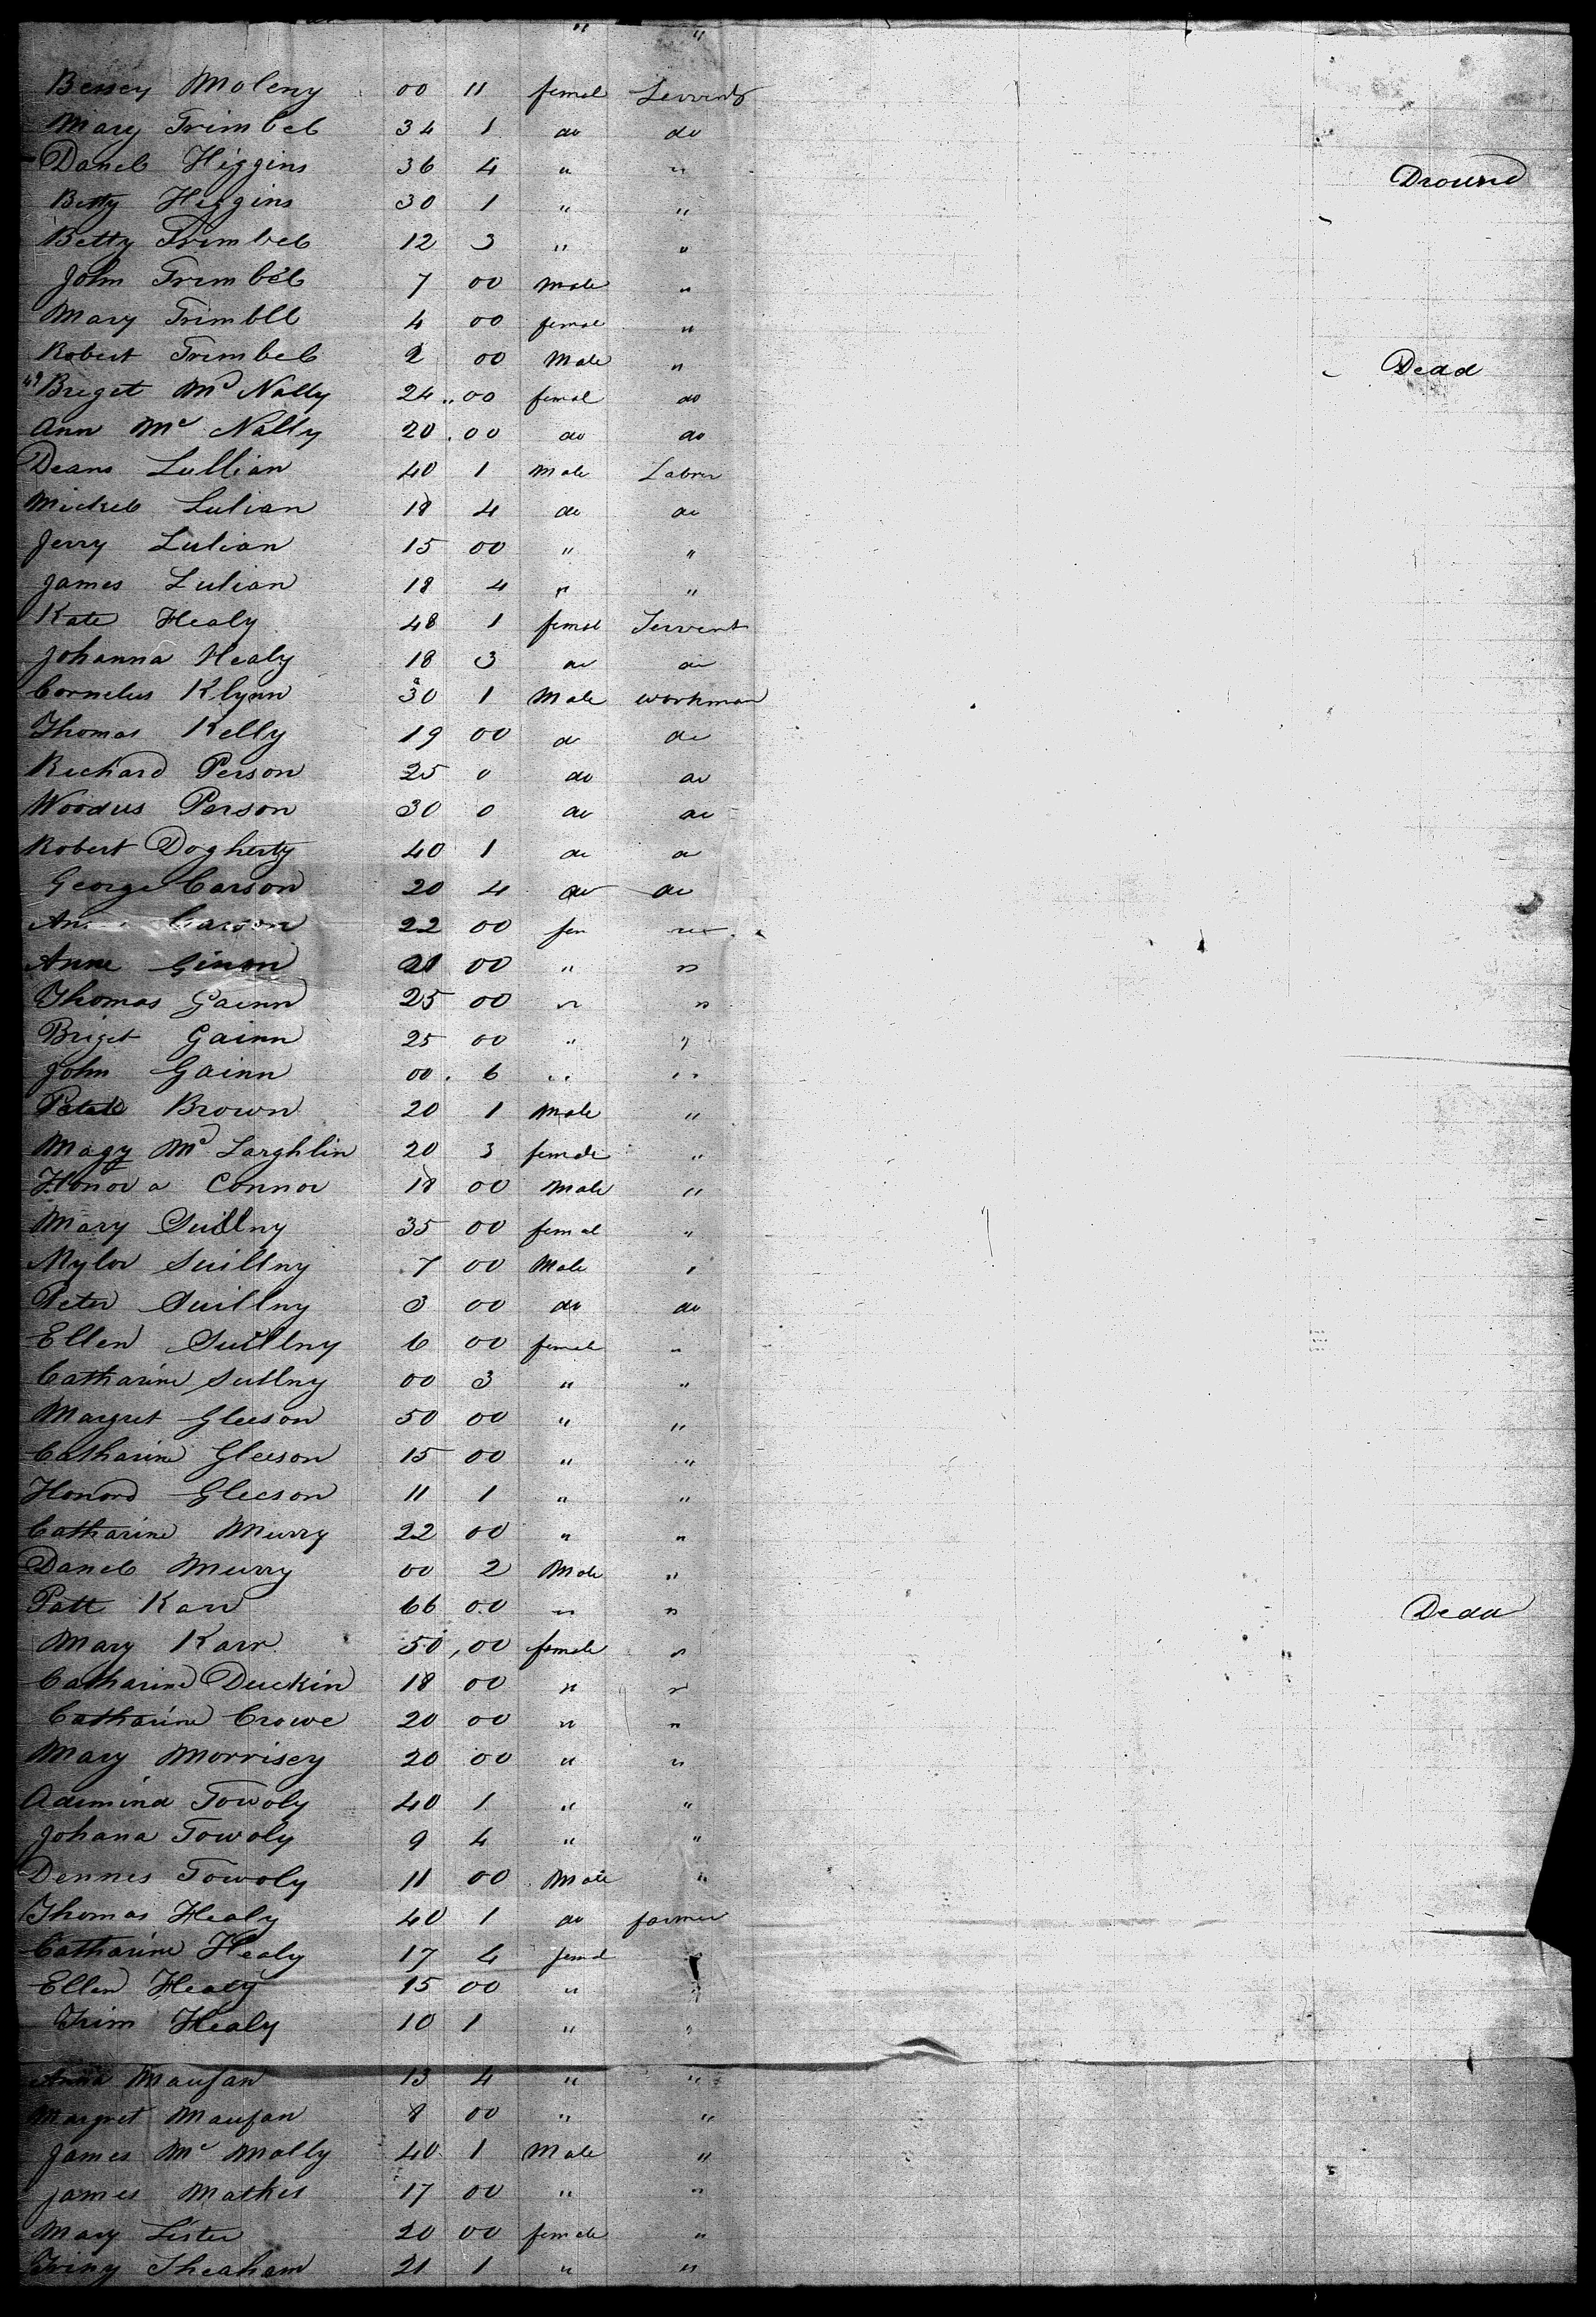 " "
Bessey Moleny 00 11 femal Servent
Mary Trimbel 34 1 do do
Danel Higgins 36 4 " " Dround
Betty Higgins 30 1 " "
Betty Trimbel 12 3 " "
John Trimbel 7 00 Male "
Mary Trimbll 4 00 femal "
Robert Trimbel 2 00 Male " Dead
49 Breget Mc Nally 24 00 femal do
Ann Mc Nally 20 00 do do
Deans Lullian 40 1 Male Labrer
Mickel Lulian 18 4 do do
Jerry Lulian 15 00 " "
James Lulian 18 4 " "
Kate Healy 48 1 femal Servent
Johanna Healy 18 3 do do
Cornelus Klynn 30 1 Male workman
Thomas Kelly 19 00 do do
Richard Person 25 0 do do
Woodus Person 30 0 do do
Robert Dogherty 40 1 do do
George Carson 20 4 do do
Carson 22 00 fem
Anne 00 " "
Thomas Gainn 25 00 " "
Briget Gainn 25 00 " "
John Gainn 00 6 " "
Brown 20 1 Male "
Magy Mc Larghlin 20 3 female "
Honora Connor 18 00 Male "
Mary Suillny 35 00 femal "
Mylor Suillny 7 00 Male "
Peter Suillny 3 00 do do
Ellen Suillny 6 00 femal "
Catharine Sullny 00 3 " "
Margret Gleeson 50 00 " "
Catharine Gleeson 15 00 " "
Honord Gleeson 11 1 " "
Catharine Murry 22 00 " "
Danel Murry 00 2 Male "
Patt Karr 66 00 " " Dead
Mary Karr 50 00 female "
Catharine Duckin 18 00 " "
Catharine Crowe 20 00 " "
Mary Morrisey 20 00 " "
Towoly 40 1 " "
Johana Towoly 9 4 " "
Dennes Towoly 11 00 Male "
Thomas Healy 40 1 do farmer
Catharine Healy 17 4 femal
Ellen Healy 15 00 " "
Trim Healy 10 1 " "
Anna Maufan 13 4 " "
Margret Maufan 8 00 " "
James Mc Mally 40 1 Male "
James Mathes 17 00 " "
Mary Lister 20 00 female "
Sheaham 21 1 " "